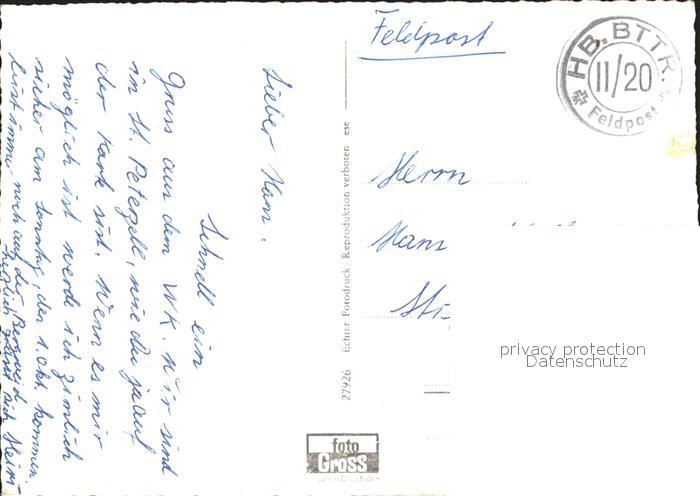 Feldpost
HB. BTTR.
II/20
Feldpost
Lieber Hans.
Schnell ein
Gruss aus dem WK. Wir sind
in St. Peterzell, wie du ja auf
der Karte sist. Wenn es mir
möglich ist werde ich zimlich
sicher am Sonntag, den 1. Okt. kommen.
immer noch auf der
Herrn
Hans
27926 Echter Fotodruck Reproduktion verboten ese
foto
Gross
privacy protection
Datenschutz